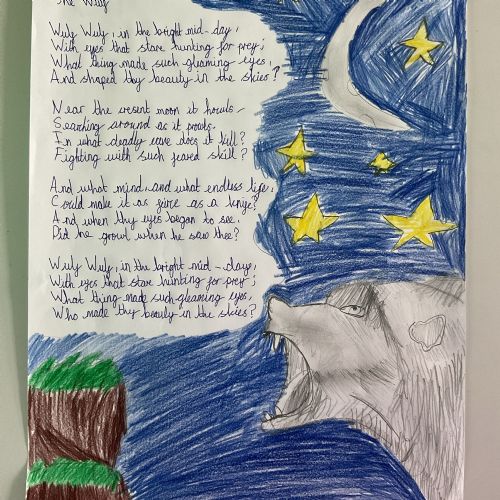 The Wuly
Wuly Wuly, in the bright mid-day,
With eyes that stare hunting for prey;
What being made such gleaming eyes,
And shaped thy beauty in the skies?
Near the cresent moon it howls
Searching around as it prowls.
In what deadly cave does it kill?
Fighting with such feared skill?
And what mind, and what endless life,
Could make it as fiire as a knife?
And when thy eyes began to see.
Did he growl when he saw thee?
Wuly Wuly, in the bright mid-days,
With eyes that stare hunting for prey;
What thing made such gleaming eyes,
Who made thy beauty in the skies?